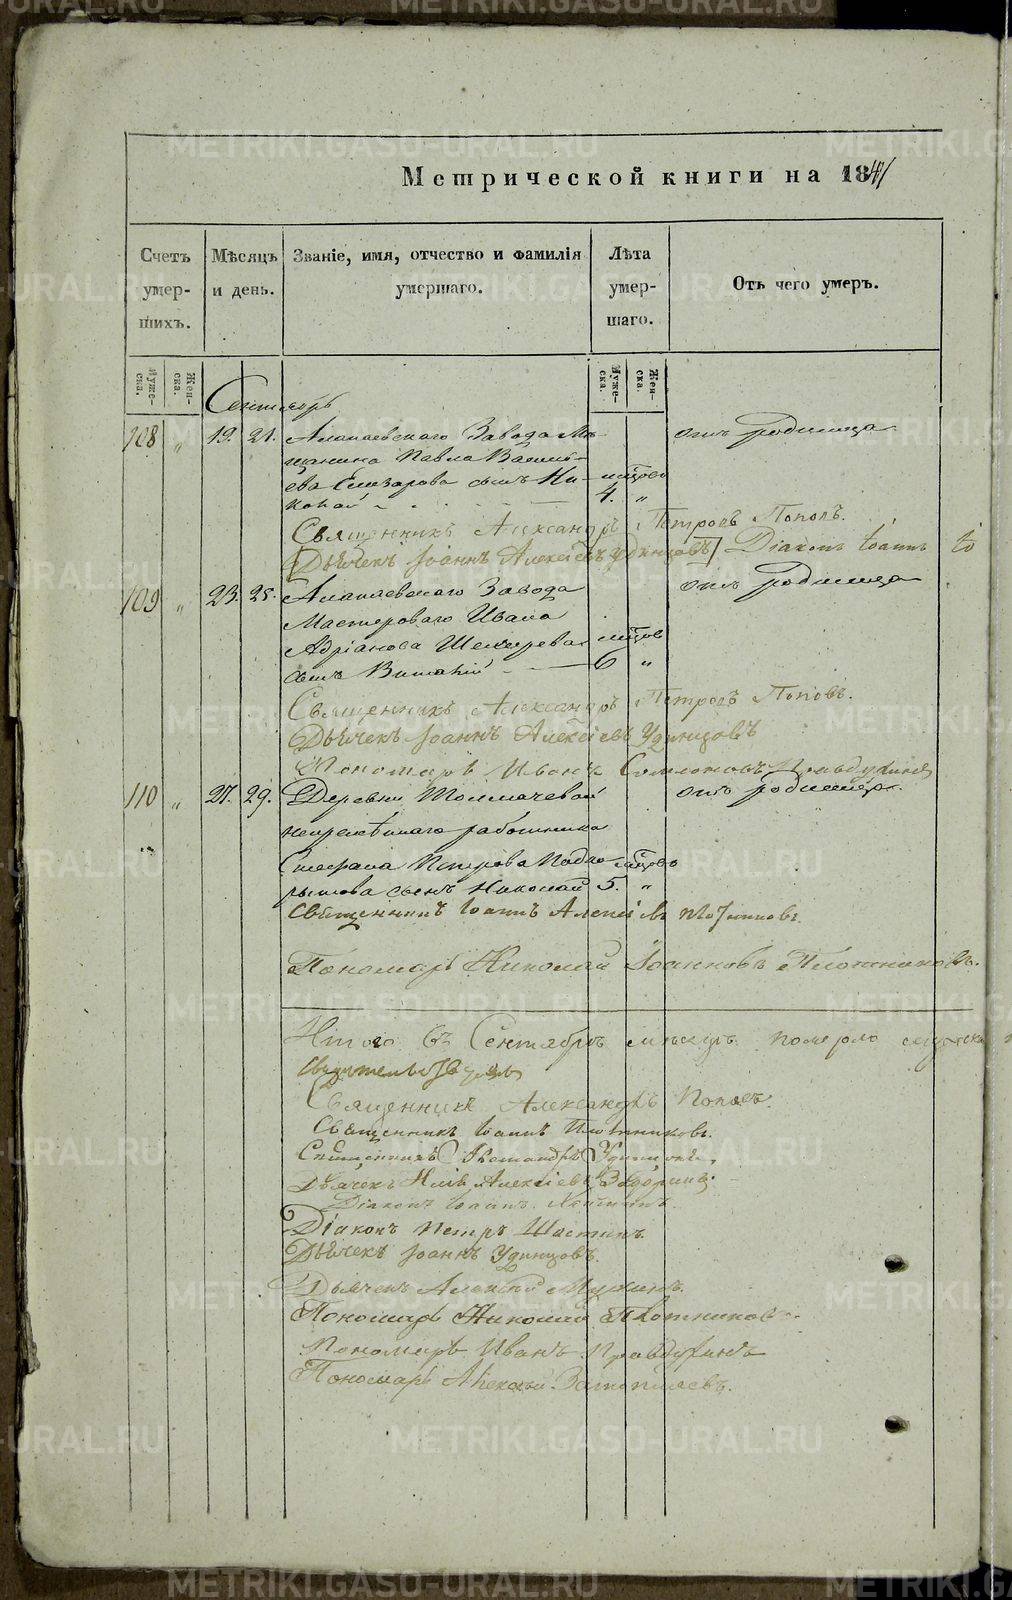 Метрической книги на 1841
Счетъ умер- шихъ.
Мѣсяцъ и день.
Званіе, имя, отчество и фамилія умершаго.
Лѣта умер- шаго.
Отъ чего умеръ.
Муже- ска.
Жен- ска.
Муже- ска.
Жен- ска.
Сентябрь
108 " 19. 21. Алапаевскаго Завода Мѣ- отъ родимца
щанина Павла Василь-
ева Елизарова сынъ Ни- мѣсяцов
колай 4. "
Священникъ Александръ Петровъ Поповъ.
Дьячекъ Іоаннъ Алексѣевъ Удинцовъ Діаконъ Іоаннъ
109 " 23. 25. Алапаевскаго Завода отъ родимца
Мастероваго Ивана
Адріанова сынъ мѣсяцов
Виталій 6 "
Священникъ Александръ Петровъ Поповъ.
Дьячекъ Іоаннъ Алексѣевъ Удинцовъ
Пономарь Иванъ Правдухинъ
110 " 27. 29. Деревни Толмачевой отъ родимца.
непремѣннаго работника
Стефана Петрова Подко- мѣсяцовъ
рытова сынъ Николай 5. "
Священникъ Іоаннъ Алексіевъ Плотниковъ.
Пономарь Николай Іоанновъ Плотниковъ.
Итого въ Сентябрѣ мѣсяцѣ померло мужеска
Священникъ Александръ Поповъ
Священникъ Іоаннъ Плотниковъ.
Священникъ Александръ Удинцовъ.
Дьячекъ Алексіевъ
Діаконъ Іоаннъ
Діаконъ Петръ Шастинъ
Дьячекъ Іоаннъ Удинцовъ.
Дьячекъ Алексѣй
Пономарь Николай Плотниковъ.
Пономарь Иванъ Правдухинъ
Пономарь Алексѣй
METRIKI.GASO-URAL.RU